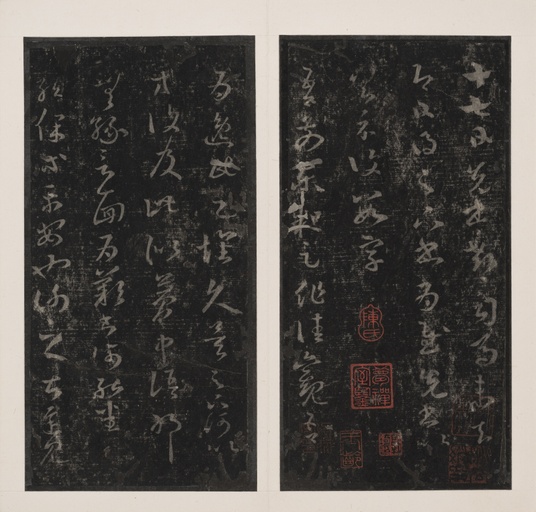 十七日先書郗司馬未去
即日得足下書為慰先書以
具示復數字
吾前東粗足作佳觀吾
為逸民之懷久矣足下何以
等復及此似夢中語耶
無緣言面為歎書何能悉
龍保等平安也謝之甚遲見
陳氏